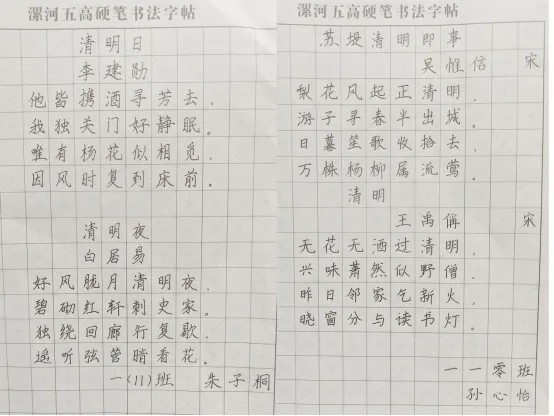 漯河五高硬笔书法字帖
清明日
李建勋
他皆携酒寻芳去，
我独关门好静眠。
唯有杨花似相觅，
因风时复到床前。
清明夜
白居易
好风胧月清明夜，
碧砌红轩刺史家。
独绕回廊行复歇，
遥听弦管暗看花。
一（11）班 朱子桐
漯河五高硬笔书法字帖
苏堤清明即事
吴惟信 宋
梨花风起正清明，
游子寻春半出城。
日暮笙歌收拾去，
万株杨柳属流莺。
清明
王禹偁 宋
无花无酒过清明，
兴味萧然似野僧。
昨日邻家乞新火，
晓窗分与读书灯。
一一零班
孙心怡